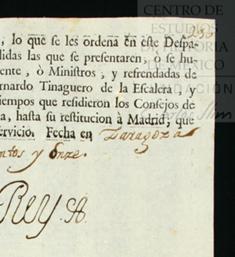 CENTRO DE
ESTUDIOS
DE HISTORIA
DE MÉXICO
FUNDACIÓN
Carlos Slim
, lo que se les ordena en este Despa-
didas las que se presentaren, ò se hu-
ente, ò Ministros, y refrendadas de
ernardo Tinaguero de la Escalera, y
tiempos que residieron los Consejos de
a, hasta su restitucion à Madrid; que
ervicio. Fecha en Zaragoza
entos y Onze.
Rey